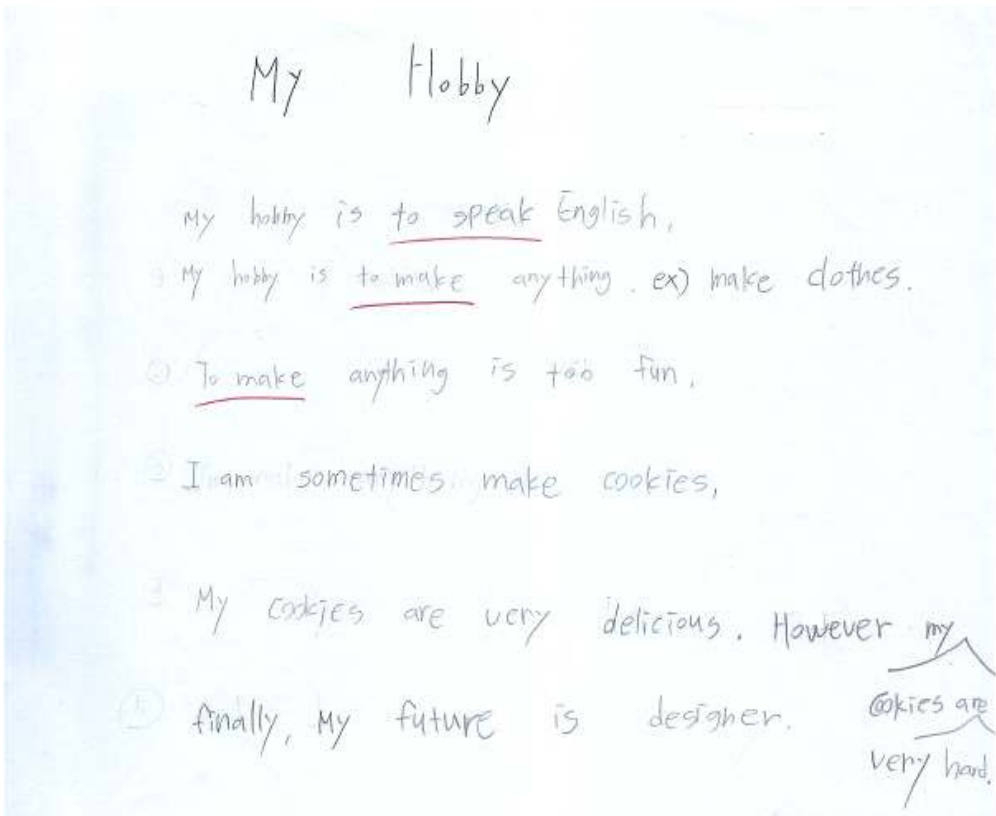 My Hobby
My hobby is to speak English,
My hobby is to make anything. ex) make clothes.
② To make anything is too fun,
③ I am sometimes make cookies,
My cookies are very delicious. However my
cookies are
very hard.
⑤ finally, My future is designer.